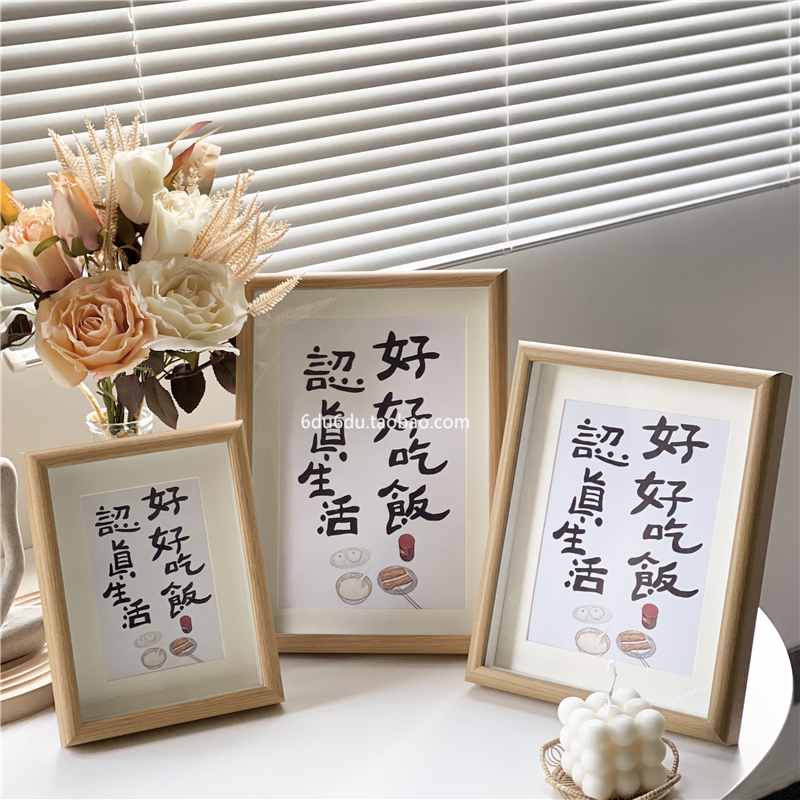 好好吃飯
認眞生活
6du6du.taobao.com
好好吃飯
認眞生活
好好吃飯
認眞生活